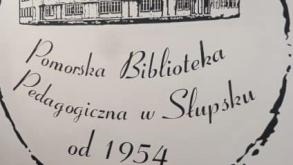 Pomorska Biblioteka
Pedagogiczna w Słupsku
od 1954